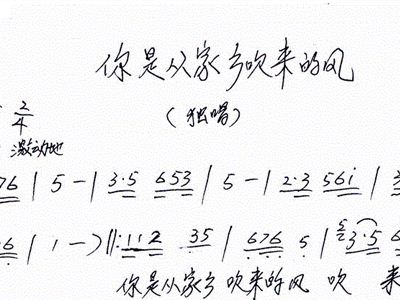 你是从家乡吹来的风
（独唱）
2/4
激动地
76 | 5 - | 3·5 653 | 5 - | 2·3 56i | 3
6 | 1 - ) ‖: 112 35 | 676 5 | 3·5 6
你是从家乡 吹来的风 吹 来